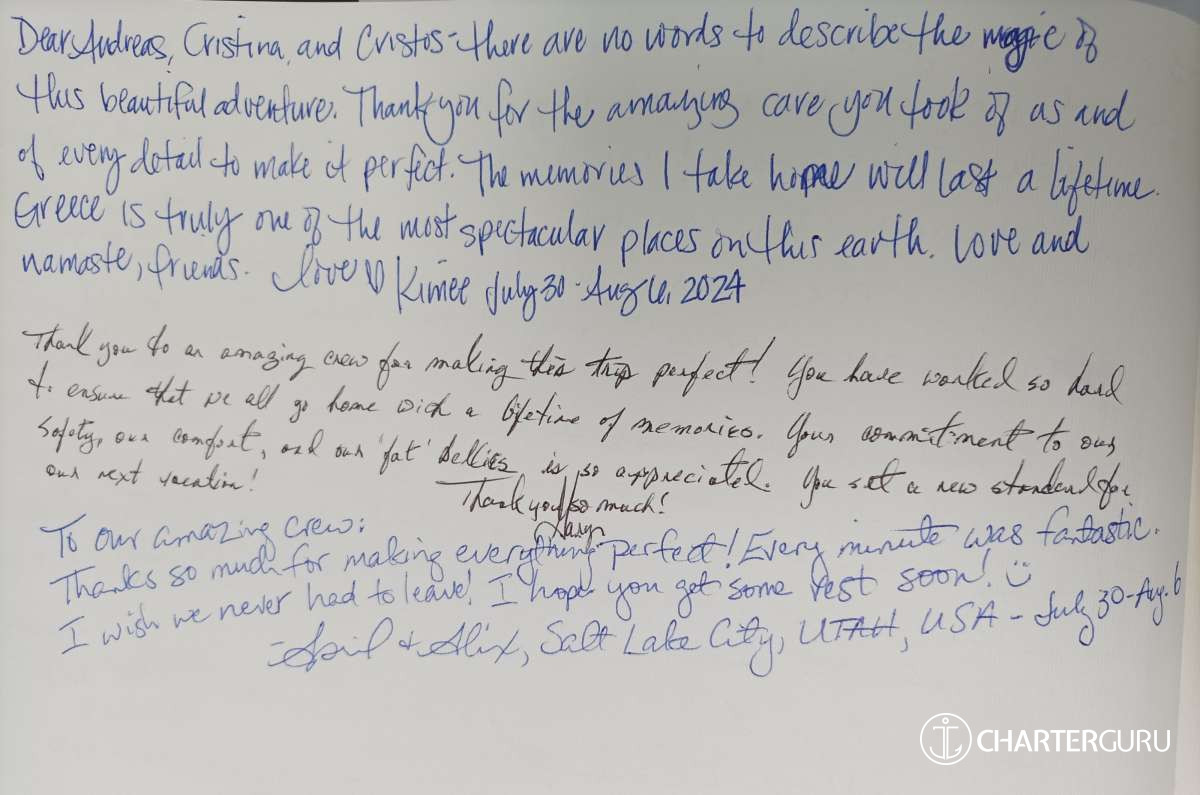 Dear Andreas, Cristina, and Cristos - there are no words to describe the magic of
this beautiful adventure. Thank you for the amazing care you took of us and
of every detail to make it perfect. The memories I take home will last a lifetime.
Greece is truly one of the most spectacular places on this earth. Love and
namaste, friends. Love ♡ Kimee July 30 - Aug 6, 2024
Thank you to an amazing crew for making this trip perfect! You have worked so hard
to ensure that we all go home with a lifetime of memories. Your commitment to our
safety, our comfort, and our 'fat' bellies is so appreciated. You set a new standard for
our next vacation!
Thank you so much!
To our amazing crew:
Thanks so much for making everything perfect! Every minute was fantastic.
I wish we never had to leave! I hope you get some rest soon! ☺
- April + Alix, Salt Lake City, UTAH, USA - July 30 - Aug. 6
CHARTERGURU